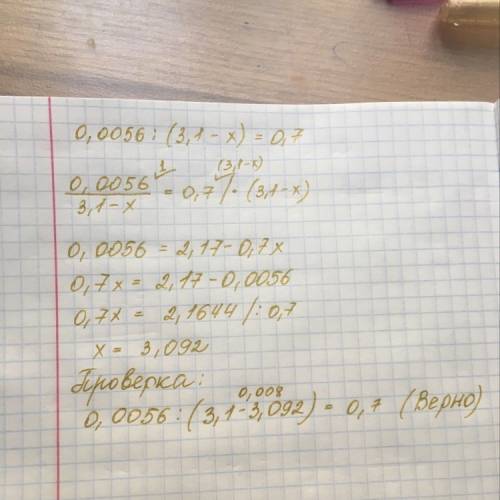 0,0056 : (3,1 - x) = 0,7
1 (3,1-x)
0,0056 / 3,1-x = 0,7 / · (3,1-x)
0,0056 = 2,17 - 0,7x
0,7x = 2,17 - 0,0056
0,7x = 2,1644 / : 0,7
x = 3,092
Проверка:
0,008
0,0056 : (3,1 - 3,092) = 0,7 (Верно)